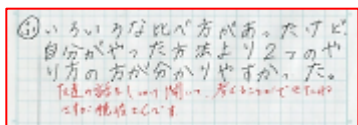 ふ いろいろな比べ方があったけど、
自分がやった方法より2つのや
り方の方が分かりやすかった。
友達の話をしっかり聞いて、考えることができたね
さすが  さんです。